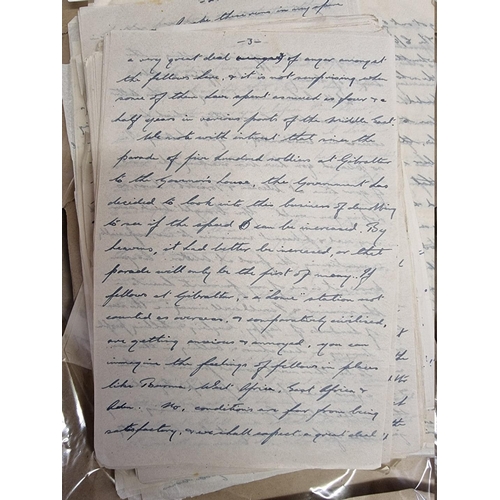 -3-
a very great deal of anger amongst
the fellows here, & it is not surprising when
some of them have spent as much as four & a
half years in various parts of the Middle East.
We note with interest that since the
parade of five hundred soldiers at Gibraltar
to the Governor's house, the Government has
decided to look into this business of demobbing
to see if the speed can be increased. By
heavens, it had better be increased, or that
parade will only be the first of many. If
fellows at Gibraltar, - a "home" station not
counted as overseas, & comparatively civilised,
are getting anxious & annoyed, you can
imagine the feelings of fellows in places
like Burma, West Africa, East Africa &
Aden. No, conditions are far from being
satisfactory, & we shall expect a great deal